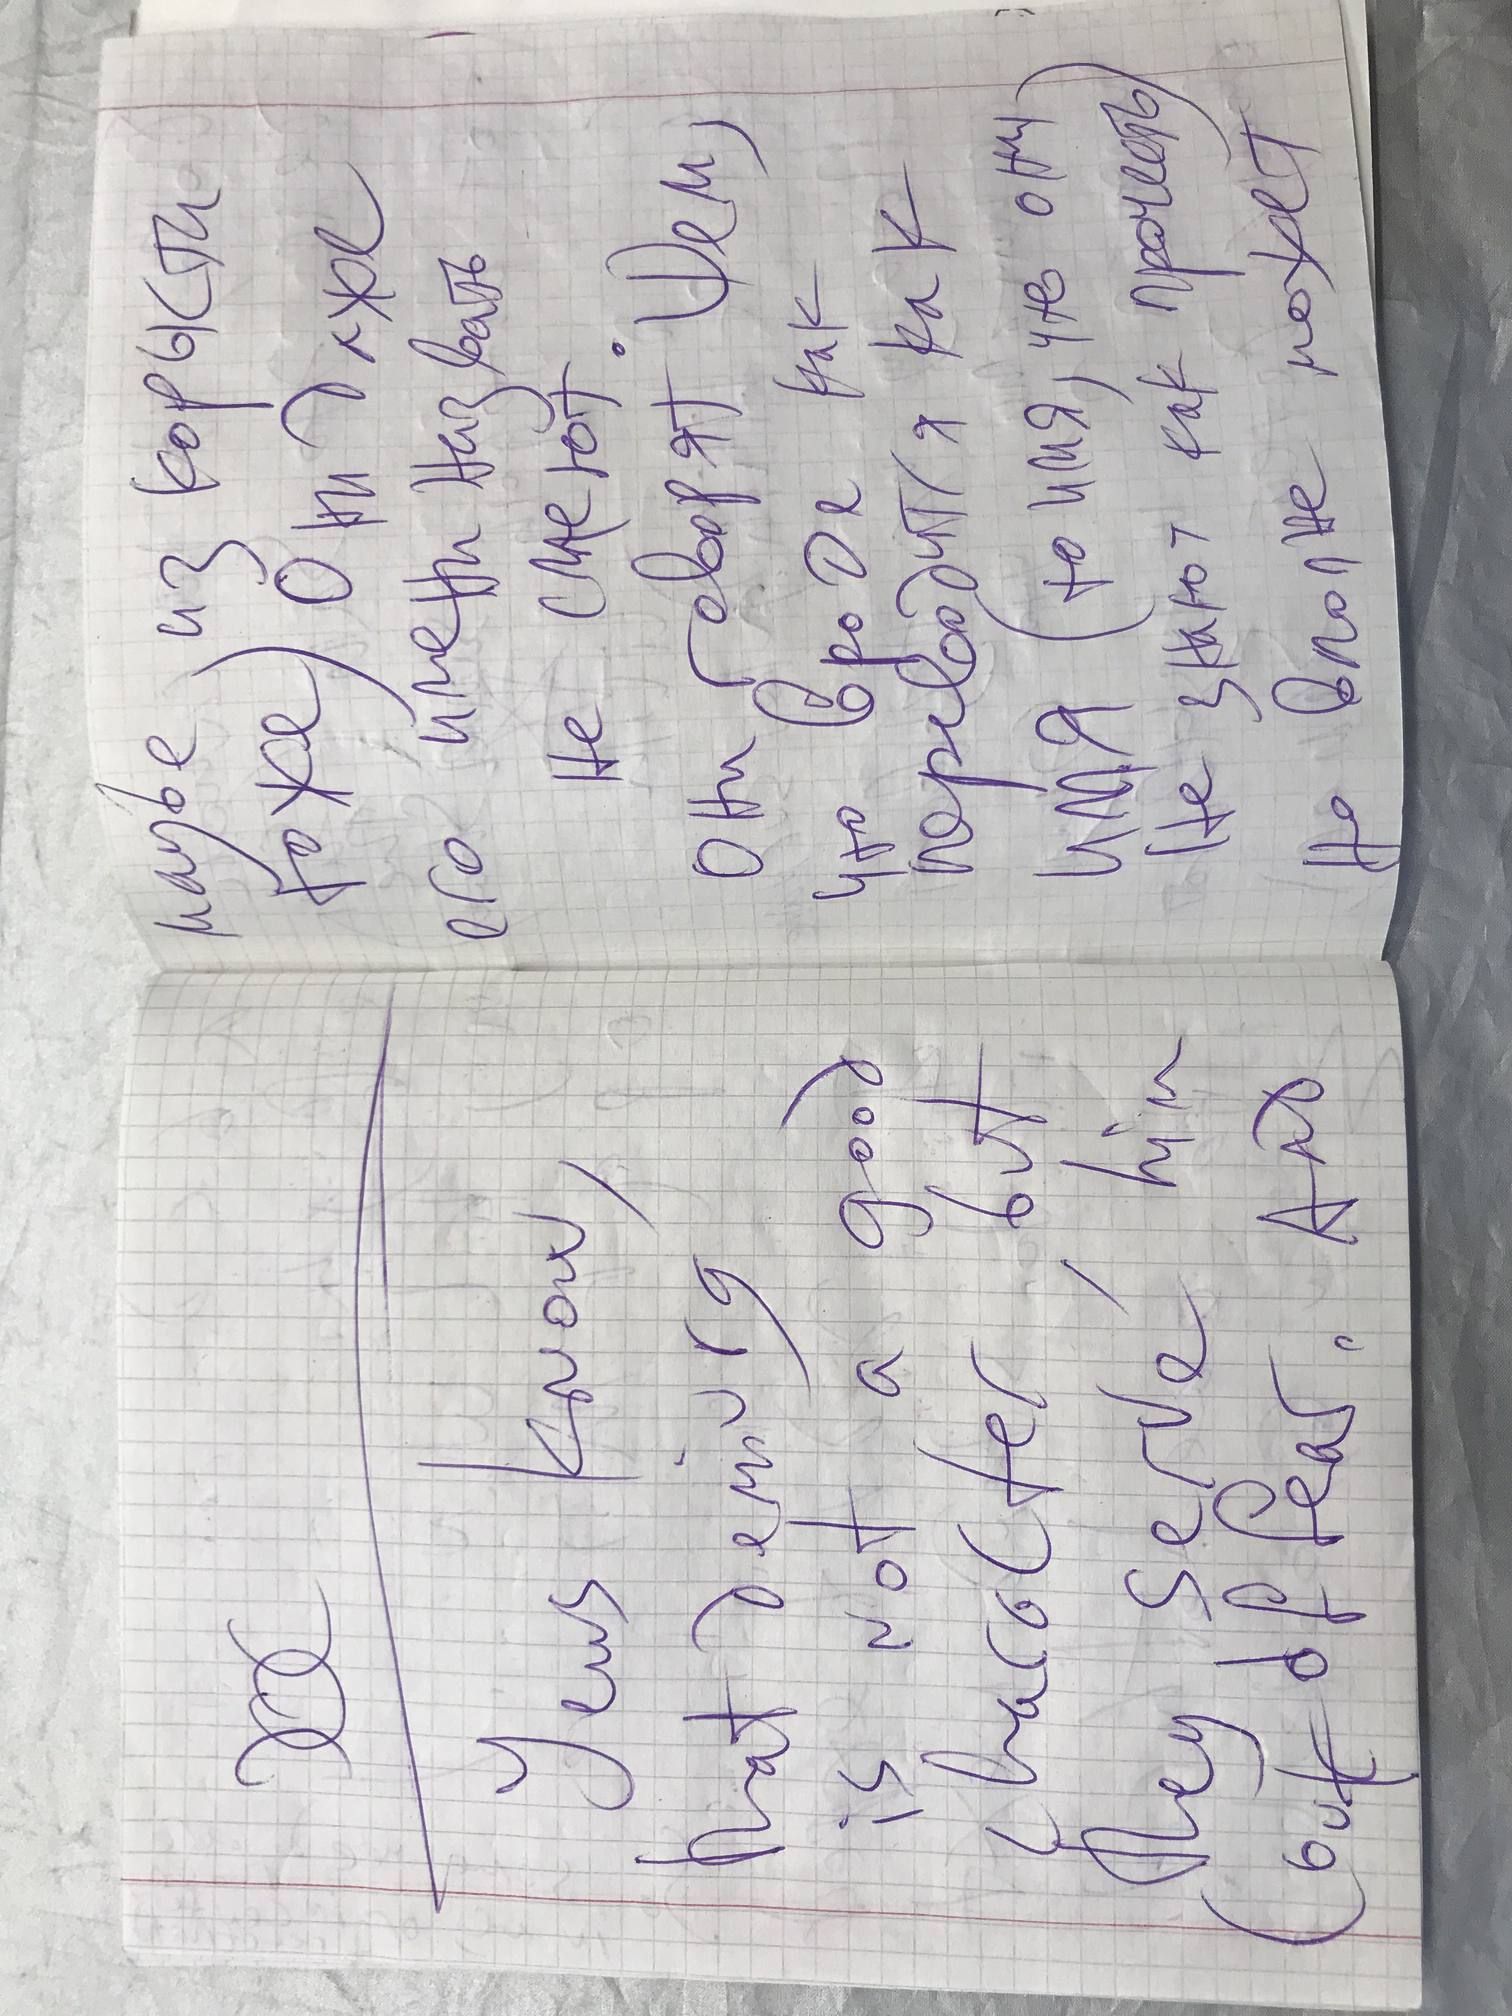 XIX
Jews know,
that demiurg
is not a good
character, but
they serve him
(out of fear. And
maybe из корысти
тоже) Они даже
его имени назвать
не смеют.
Они говорят Шем,
что вроде как
переводится как
имя (то имя, что они
не знают как прочесть)
не может